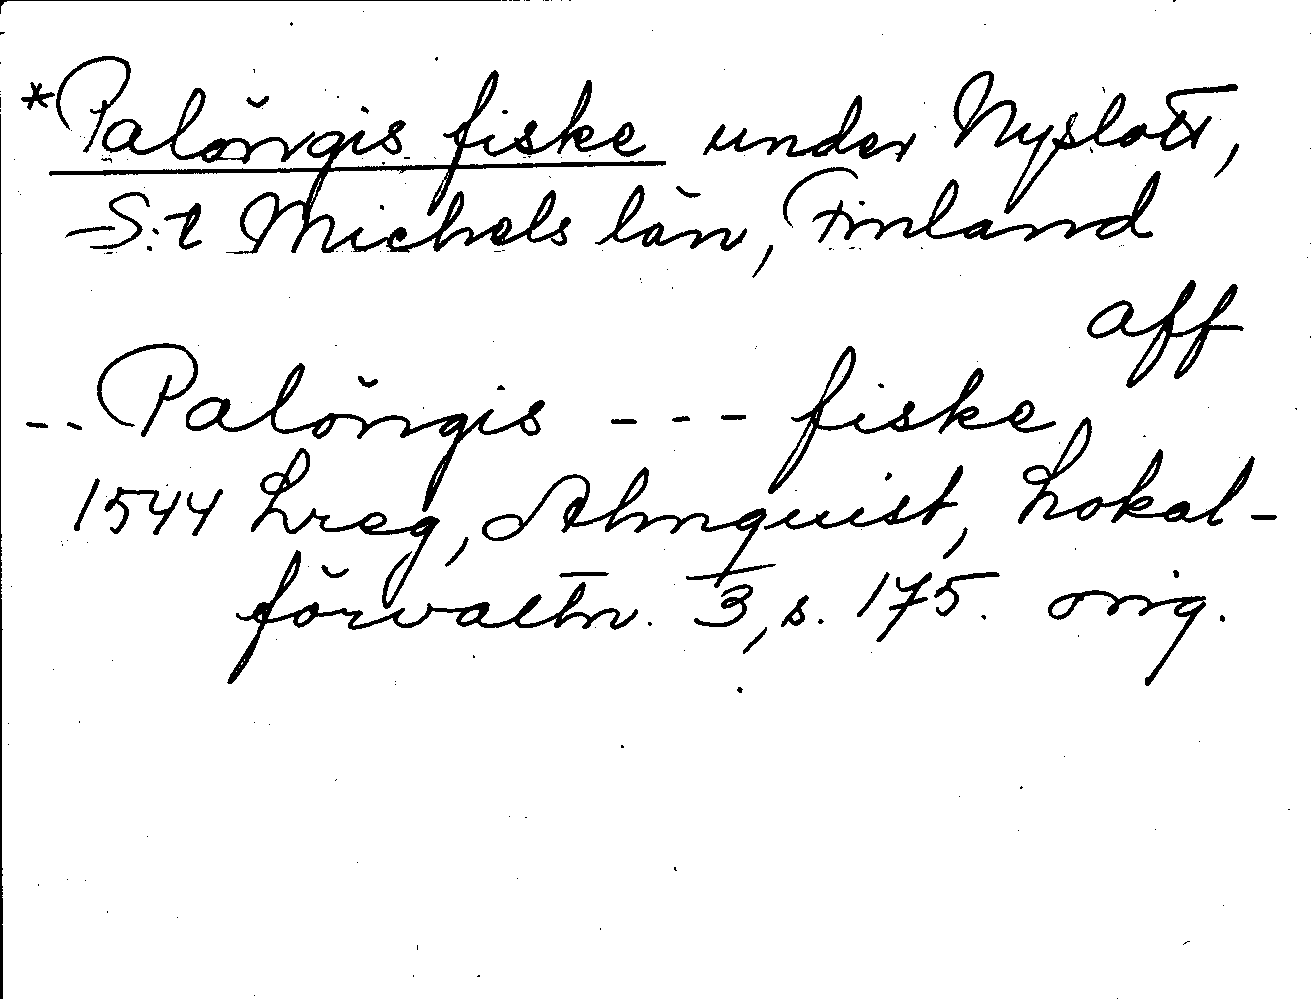 *Palöngis fiske under Nyslott,
S:t Michels län, Finland
aff
-- Palöngis --- fiske
1544 Lreg, Almquist, Lokal-
förvaltn. 3, s. 175. orig.